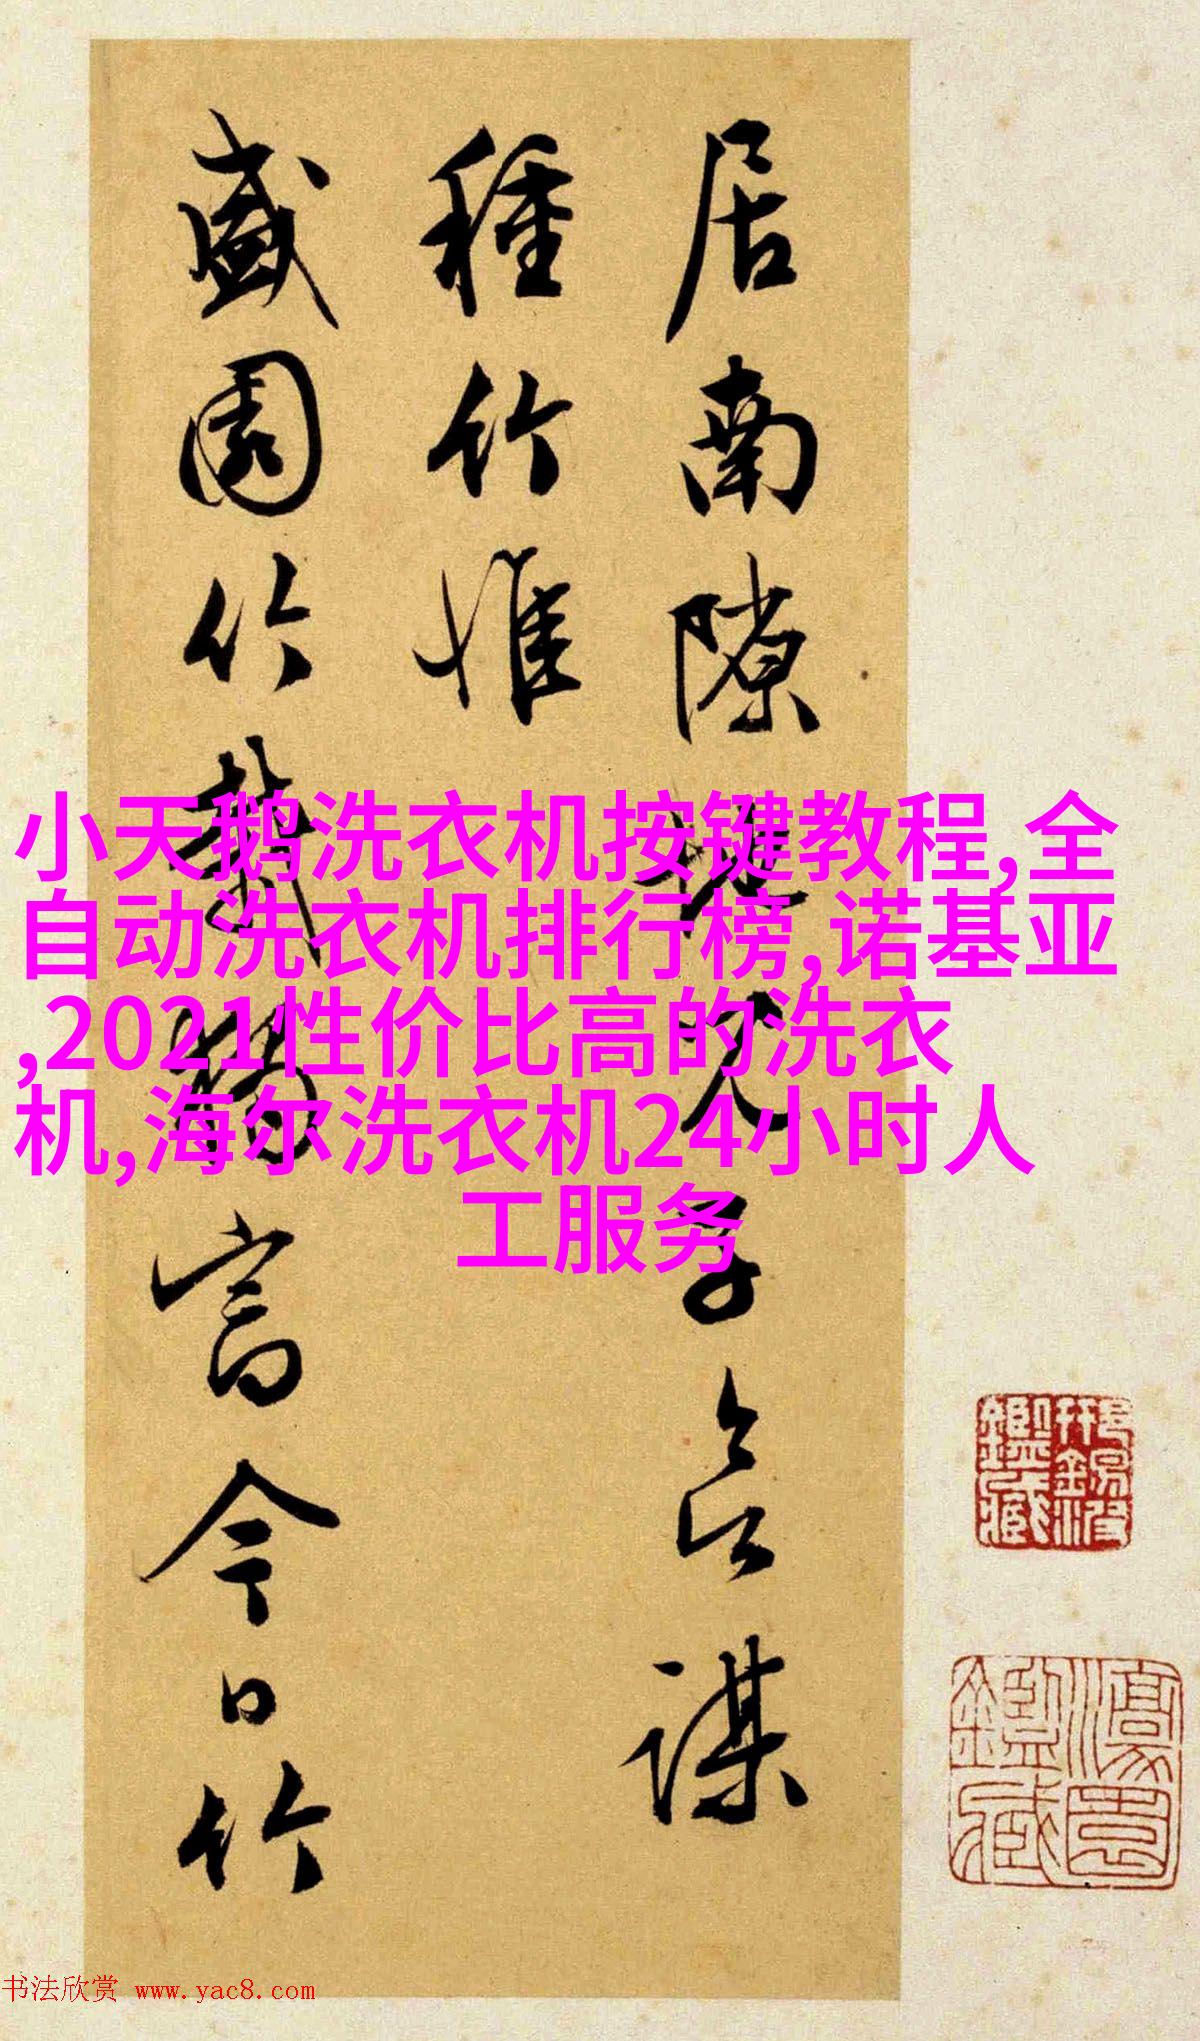 居南隙地子謀
種竹惟
盛園竹今日竹
小天鹅洗衣机按键教程,全
自动洗衣机排行榜,诺基亚
,2021性价比高的洗衣
机,海尔洗衣机24小时人
工服务
鑑藏
鑑藏
书法欣赏 www.yac8.com